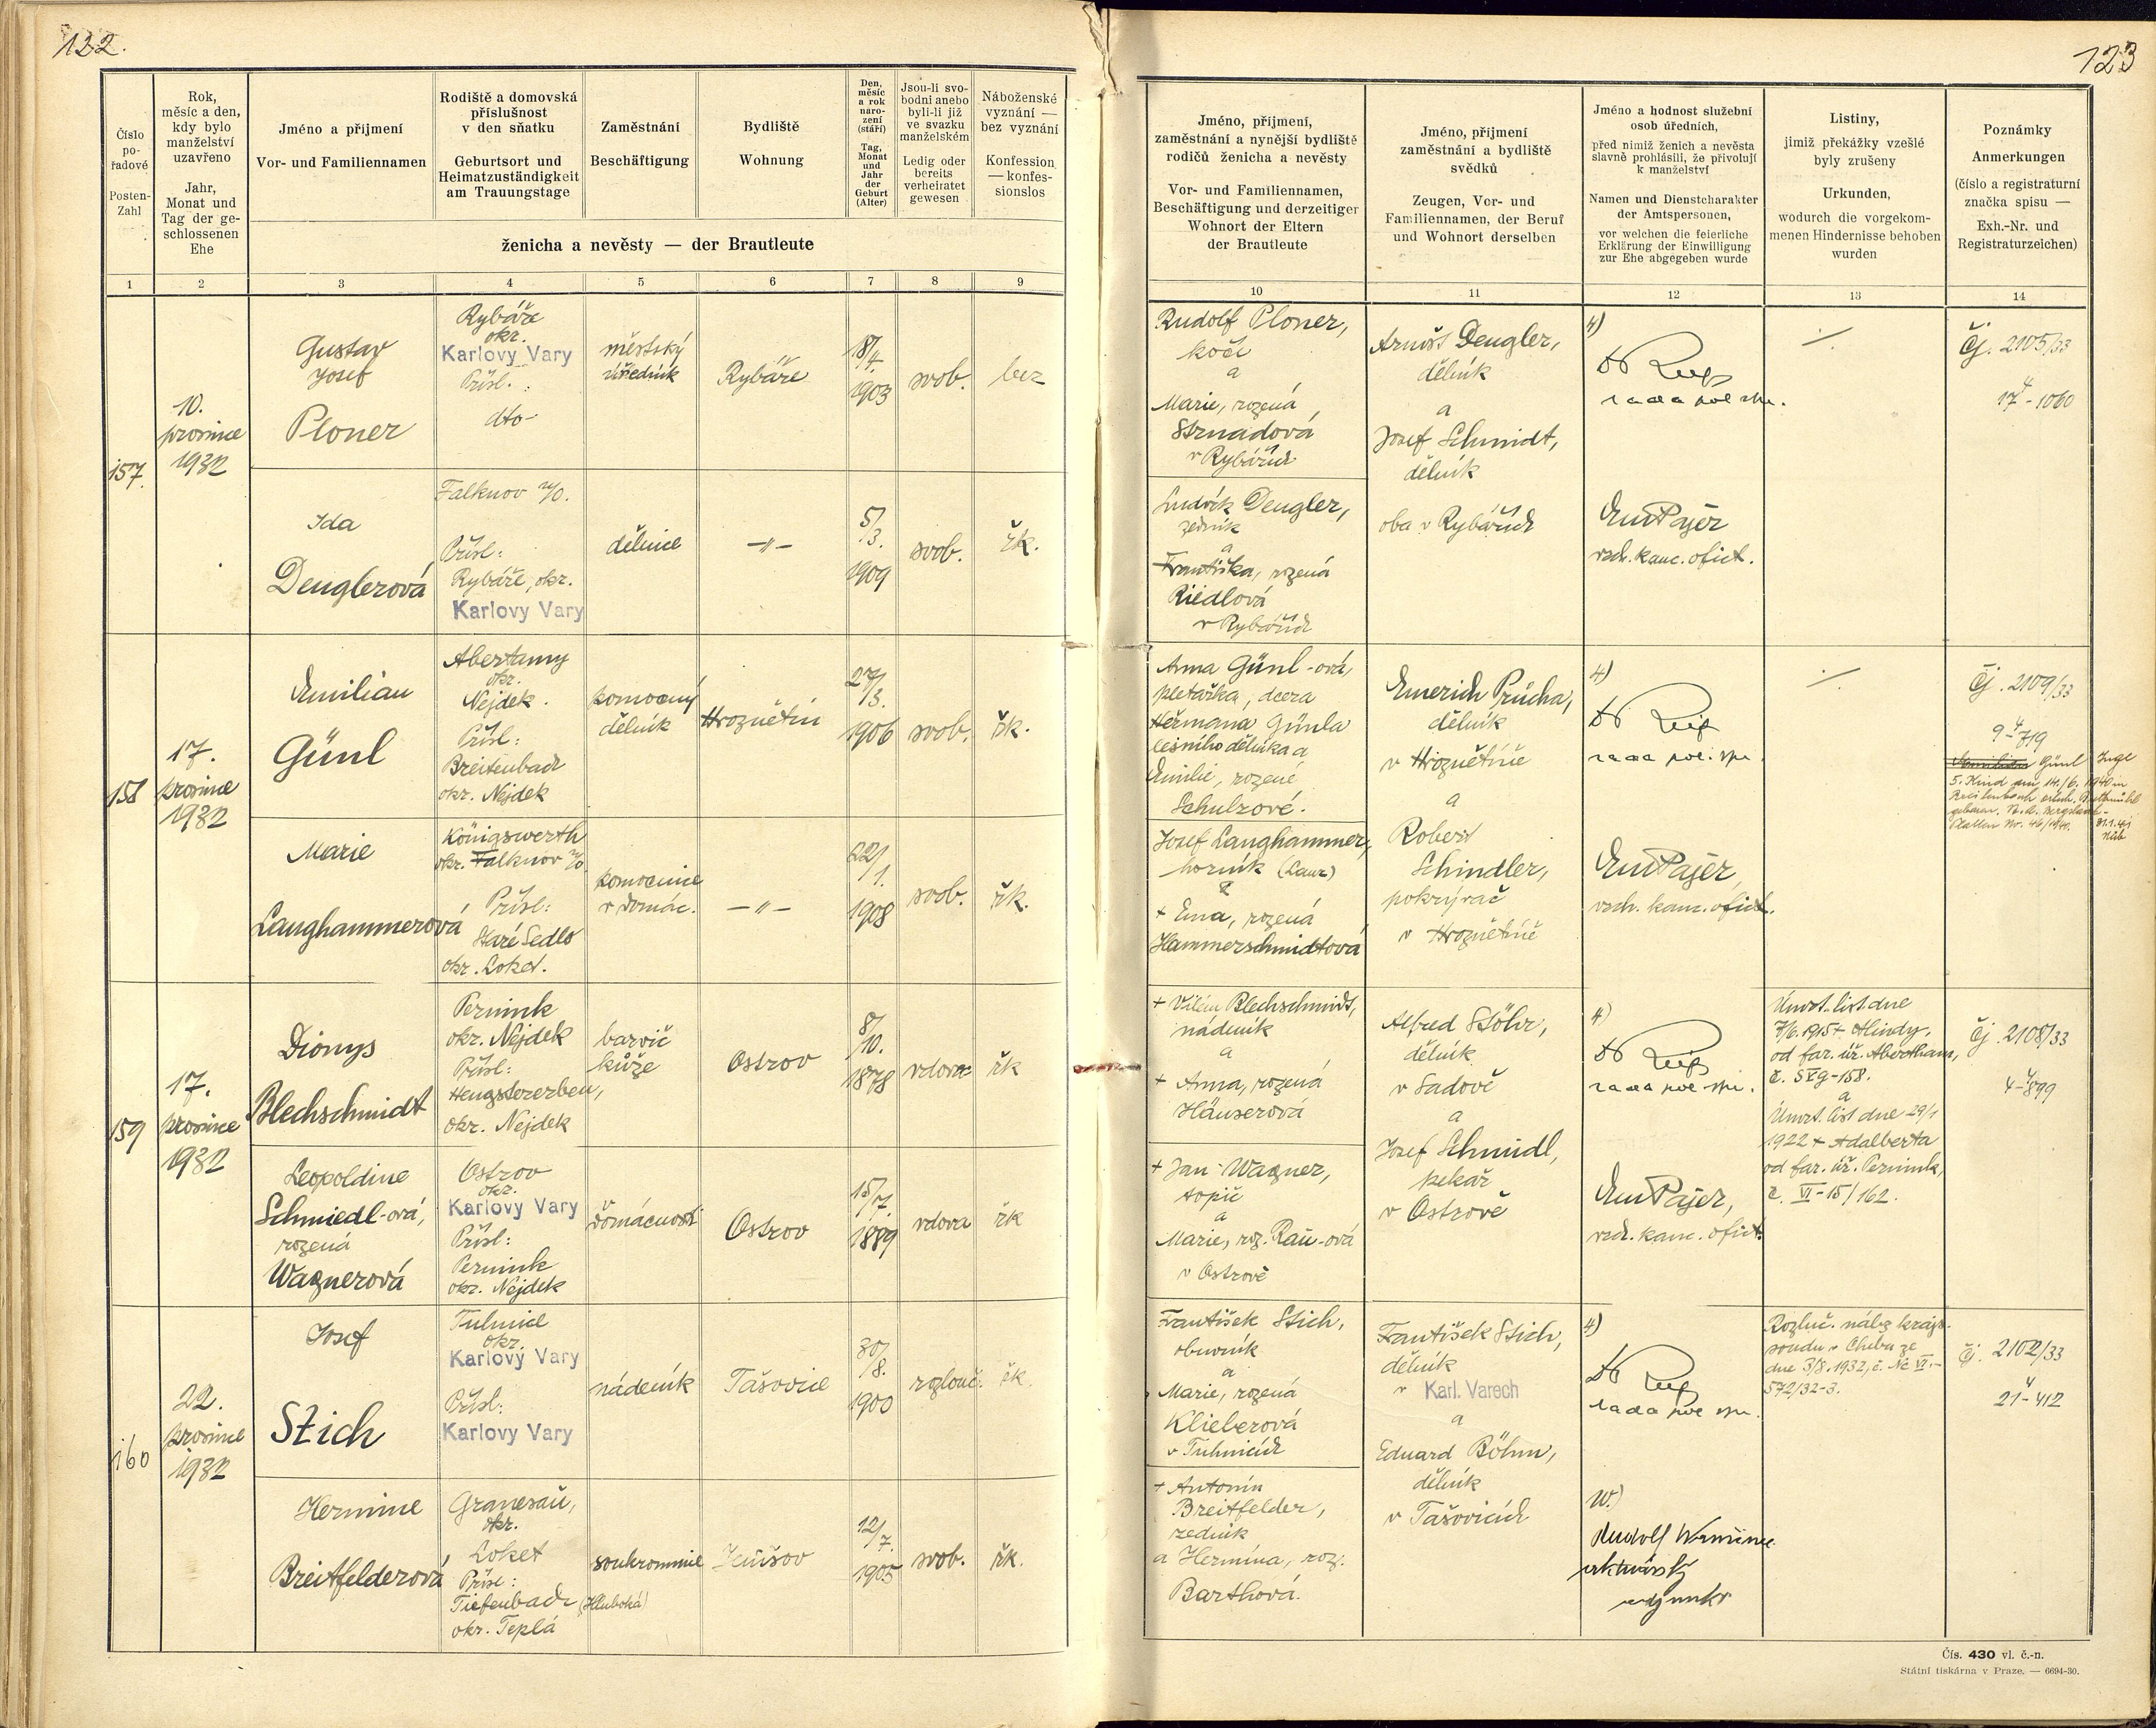 122.
Číslo
po-
řadové
Posten-
Zahl
Rok,
měsíc a den,
kdy bylo
manželství
uzavřeno
Jahr,
Monat und
Tag der ge-
schlossenen
Ehe
Jméno a příjmení
Vor- und Familiennamen
Rodiště a domovská
příslušnost
v den sňatku
Geburtsort und
Heimatzuständigkeit
am Trauungstage
Zaměstnání
Beschäftigung
Bydliště
Wohnung
Den,
měsíc
a rok
naro-
zení
(stáří)
Tag,
Monat
und
Jahr
der
Geburt
(Alter)
Jsou-li svo-
bodni anebo
byli-li již
ve svazku
manželském
Ledig oder
bereits
verheiratet
gewesen
Náboženské
vyznání —
bez vyznání
Konfession
— konfes-
sionslos
ženicha a nevěsty — der Brautleute
1 2 3 4 5 6 7 8 9
157.
10.
prosince
1932
Gustav
Josef
Ploner
Rybáře
okr.
Karlovy Vary
Přísl. :
dto
městský
úředník
Rybáře
18/
4.
1903
svob.
bez
Ida
Denglerová
Falknov n/O.
Přísl:
Rybáře, okr.
Karlovy Vary
dělnice
—"—
5/
3.
1909
svob.
řk.
158
17.
prosince
1932
Emilian
Günl
Abertamy
okr.
Nejdek.
Přísl:
Breitenbach
okr. Nejdek
pomocný
dělník
Hroznětín
27/
3.
1906
svob.
řk.
Marie
Langhammerová
Königswerth
okr. Falknov n/O
Přísl:
Staré Sedlo
okr. Loket.
pomocnice
v domác.
—"—
22/
1.
1908
svob.
řk.
159
17.
prosince
1932
Dionys
Blechschmidt
Pernink
okr. Nejdek
Přísl:
Hengstererben,
okr. Nejdek
barvič
kůže
Ostrov
8/
10.
1878
vdova
řk
Leopoldine
Schmiedl-ová,
rozená
Wagnerová
Ostrov
okr.
Karlovy Vary
Přísl:
Pernink
okr. Nejdek
v domácnosti
Ostrov
15/
7.
1889
vdova
řk
160
22.
prosince
1932
Josef
Stich
Tuhnice
okr.
Karlovy Vary
Přísl:
Karlovy Vary
nádeník
Tašovice
30/
8.
1900
rozlouč.
řk.
Hermine
Breitfelderová
Granesau,
okr.
Loket
Přísl:
Tiefenbach (Hluboká)
okr. Teplá
soukromnice
Jenišov
12/
7.
1905
svob.
řk.
123
Jméno, příjmení,
zaměstnání a nynější bydliště
rodičů ženicha a nevěsty
Vor- und Familiennamen,
Beschäftigung und derzeitiger
Wohnort der Eltern
der Brautleute
Jméno, příjmení
zaměstnání a bydliště
svědků
Zeugen, Vor- und
Familiennamen, der Beruf
und Wohnort derselben
Jméno a hodnost služební
osob úředních,
před nimiž ženich a nevěsta
slavně prohlásili, že přivolují
k manželství
Namen und Dienstcharakter
der Amtspersonen,
vor welchen die feierliche
Erklärung der Einwilligung
zur Ehe abgegeben wurde
Listiny,
jimiž překážky vzešlé
byly zrušeny
Urkunden,
wodurch die vorgekom-
menen Hindernisse behoben
wurden
Poznámky
Anmerkungen
(číslo a registraturní
značka spisu —
Exh.-Nr. und
Registraturzeichen)
10 11 12 13 14
Rudolf Ploner,
kočí
a
Marie, rozená
Strnadová
v Rybářích
Arnošt Dengler,
dělník
a
Josef Schmidt,
dělník
oba v Rybářích
4)
Dr
rada pol. spr.
Em Pajer
vrch. kanc. ofict.
Čj. 2105/33
17-1060
Ludvík Dengler,
zedník
a
Františka, rozená
Riedlová
v Rybářích
Anna Günl-ová,
pletařka, dcera
Heřmana Günla
lesního dělníka a
Emilie, rozené
Schulzové.
Emerich Průcha,
dělník
v Hroznětíně
a
Robert
Schindler,
pokrývač
v Hroznětíně
4)
Dr
rada pol. spr.
Em Pajer,
vrch. kanc. ofict.
Čj. 2109/33
9-719
Günl Inge
5. Kind am 14/6. 1940 in
Breitenbach
geboren.
Platten Nr. 46/1940.
31.1.41
Josef Langhammer,
horník (Lanz)
&
+ Ema, rozená
Hammerschmidtová
+ Vilém Blechschmidt,
nádeník
a
+ Anna, rozená
Häuserová
Alfred Stöhr,
dělník
v Sadově
a
Josef Schmidl,
pekař
v Ostrově
4)
Dr
rada pol. spr.
Em Pajer,
vrch. kanc. ofict.
Úmrt. list dne
7/6. 1915 +
od far. úř. Abertham,
č. 5
a
Úmrt. list dne 29/1
1922 + Adalberta
od far. úř. Pernink,
č. VI-15/162.
čj. 2108/33
4-899
+ Jan Wagner,
topič
a
Marie, roz. Rau-ová
v Ostrově
František Stich,
obuvník
a
Marie, rozená
Klieberová
v Tuhnicích
František Stich,
dělník
v Karl. Varech
a
Eduard Böhm,
dělník
v Tašovicích
4)
Dr
rada pol. spr.
W.)
Rudolf
aktuárský
adjunkt
Rozluč. nález krajs.
soudu v Chebu ze
dne 3/8. 1932, č. Nc VI.-
572/32-3.
čj. 2102/33
21-412
+ Antonín
Breitfelder,
zedník
a Hermína, roz.
Barthová.
Čís. 430 vl. č.-n.
Státní tiskárna v Praze. — 6694-30.